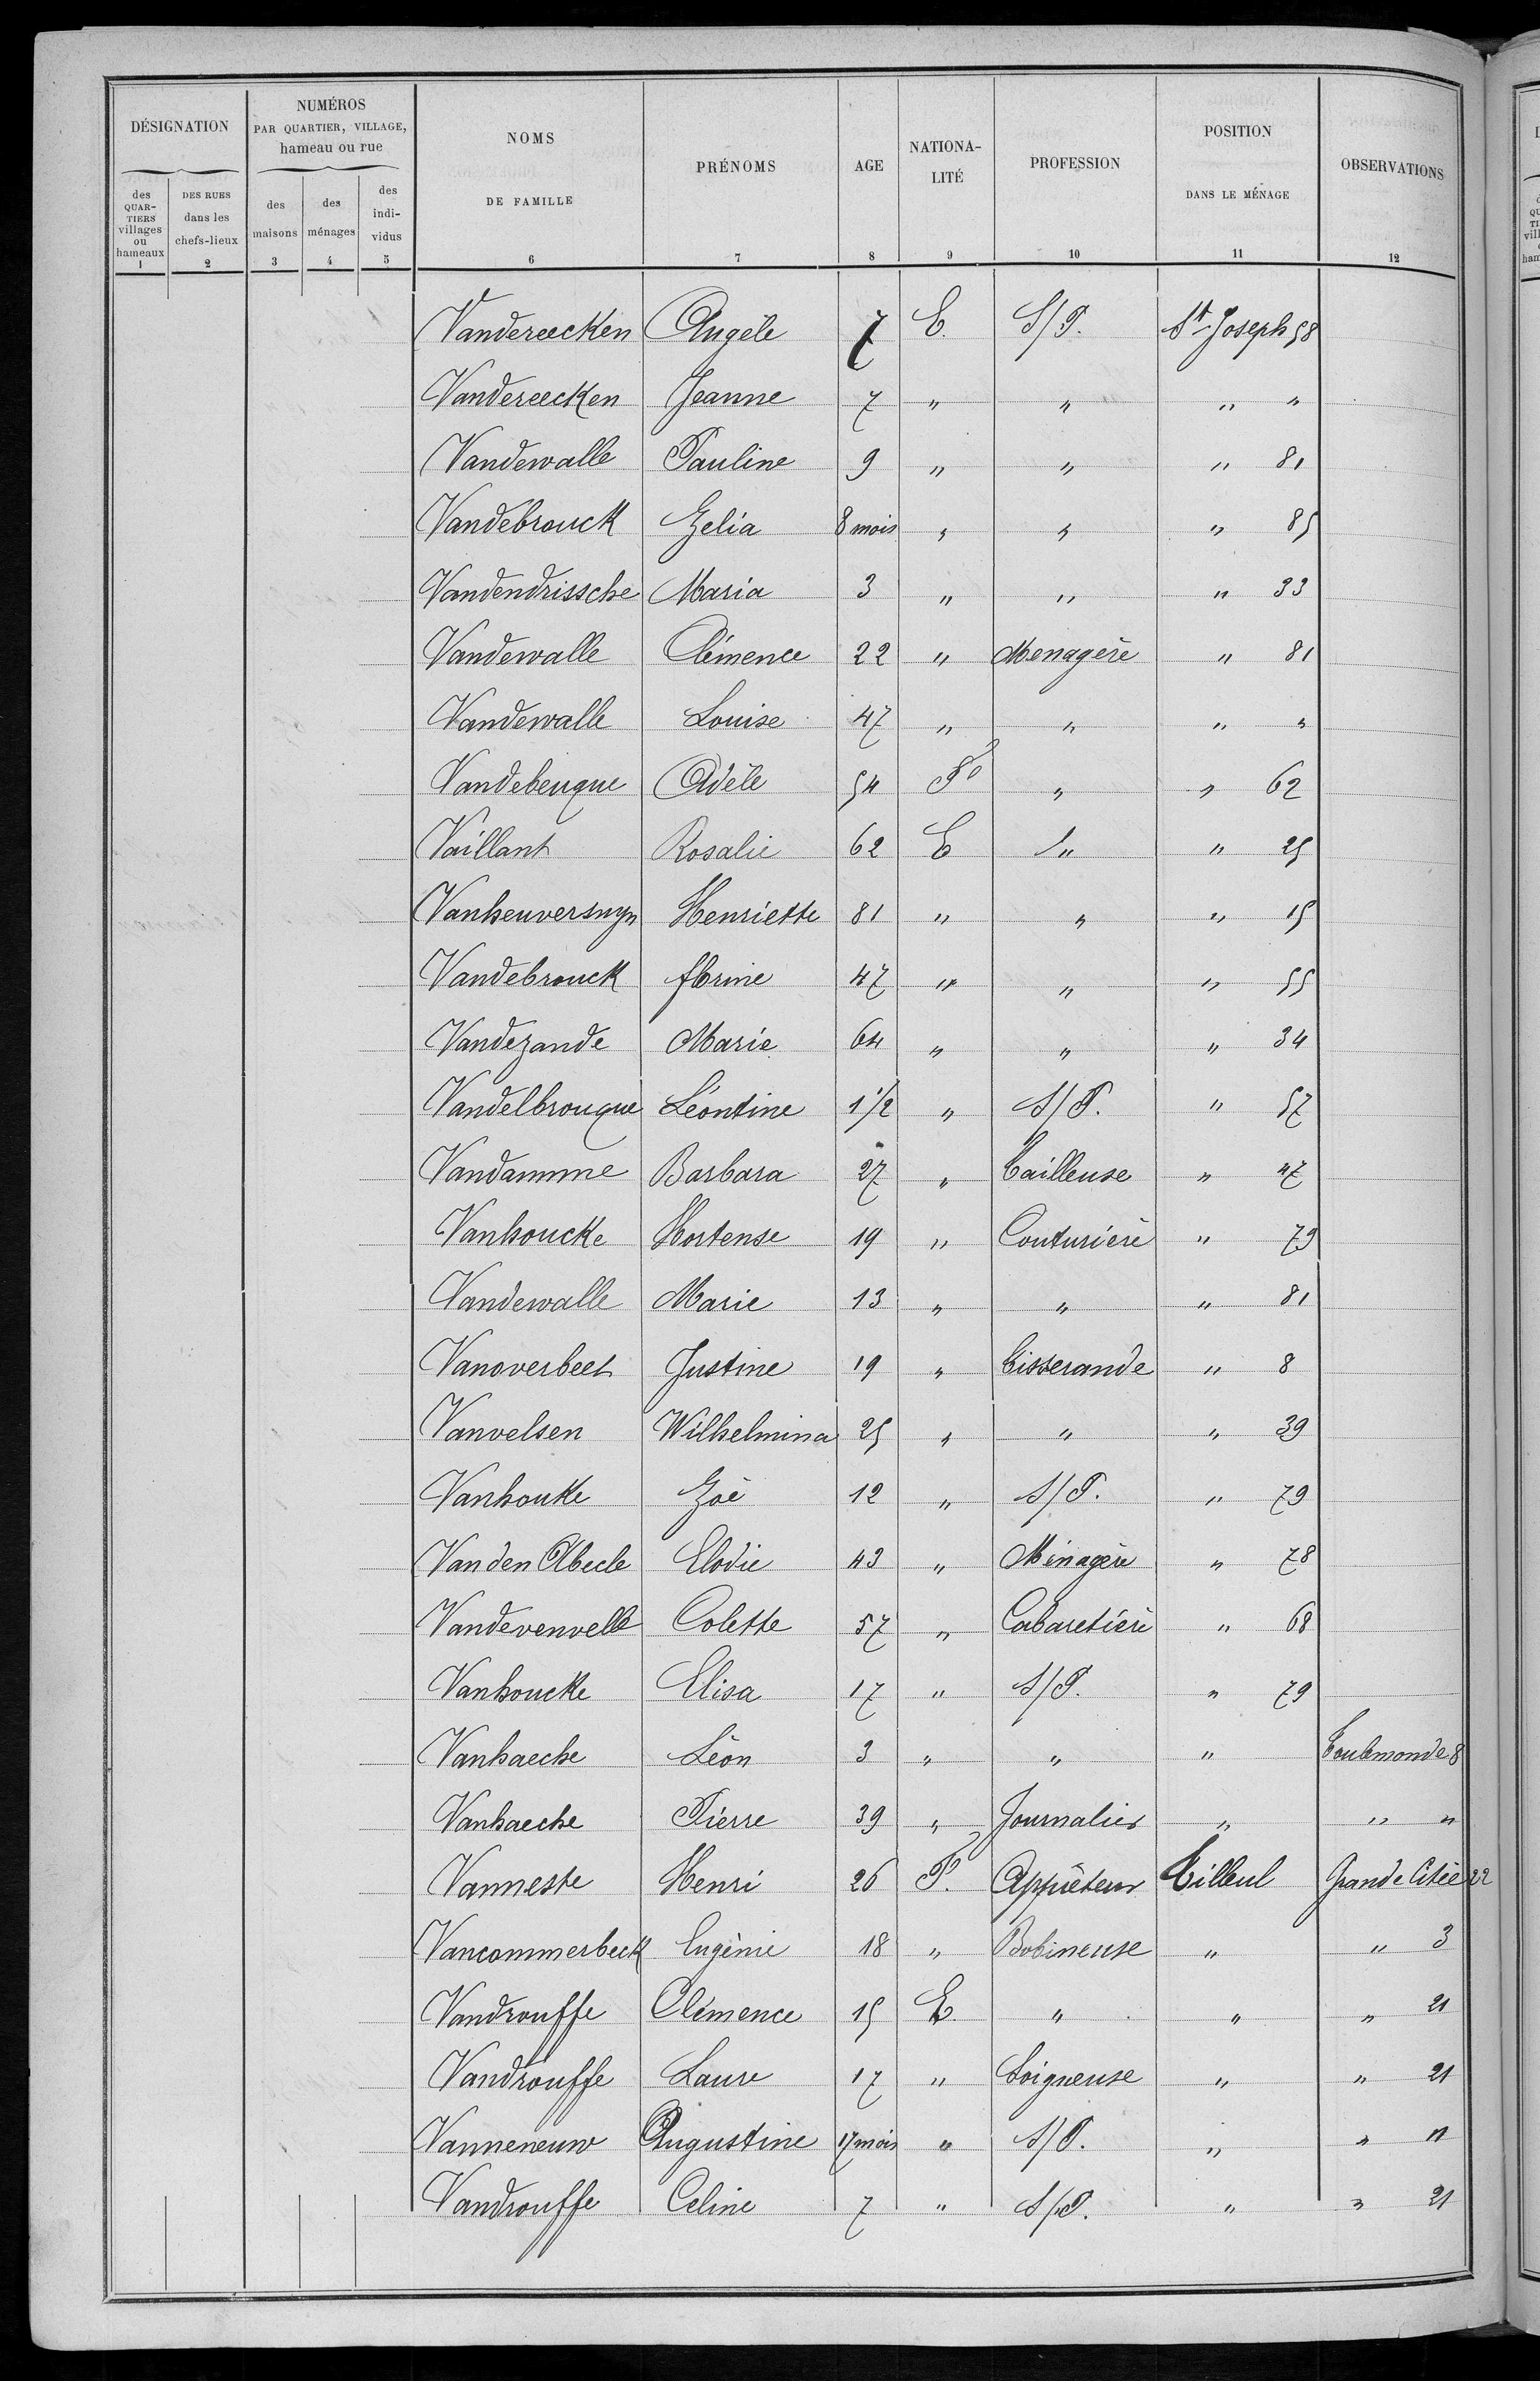 DÉSIGNATION
NUMÉROS
PAR QUARTIER, VILLAGE,
hameau ou rue
NOMS
DE FAMILLE
PRÉNOMS
AGE
NATIONA-
LITÉ
PROFESSION
POSITION
DANS LE MÉNAGE
OBSERVATIONS
des
QUAR-
TIERS
villages
ou
hameaux
DES RUES
dans les
chefs-lieux
des
maisons
des
ménages
des
indi-
vidus
1 2 3 4 5 6 7 8 9 10 11 12
Vandereecken Angèle 7 E. S/P. St Joseph 58
Vandereecken Jeanne 7 " " " "
Vandewalle Pauline 9 " " " 81
Vandebrouck Zelia 8 mois " " " 85
Vandendrissche Maria 3 " " " 33
Vandewalle Clémence 22 " Menagère " 81
Vandewalle Louise 47 " " " "
Vandebeuque Adèle 54 " " 62
Vaillant Rosalie 62 E " " 25
Vanheuverswyn Henriette 81 " " " 15
Vandebrouck 47 " " " 55
Vandezande Marie 64 " " " 34
Vandelbrouque Léontine 1 1/2 " S/P. " 57
Vandamme Barbara 27 " Tailleuse " 47
Vanhoucke Hortense 19 " Couturière " 79
Vandewalle Marie 13 " " " 81
Vanoverbeet Justine 19 " Tisserande " 8
Vanvelsen Wilhelmina 25 " " " 39
Vanhouke Zoè 12 " S/P. " 79
Van den Abeele Elodie 43 " Ménagère " 78
Vandevenvelle Colette 57 " Cabaretière " 68
Vanhoucke Elisa 17 " S/P. " 79
Vanhaeche Léon 3 " " " Toulemonde 8
Vanhaeche Pierre 39 " Journalier " " "
Vanneste Henri 26 F. Apprêteur Tilleul Grande Citée 22
Vancommerbeck Eugènie 18 " Bobineuse " " 3
Vandrouffe Clémence 15 E. " " " 21
Vandrouffe Laure 17 " Soigneuse " " 21
Vanneneuw Augustine 17 mois " S/P. " " 11
Vandrouffe Celine 7 " S/P. " " 21